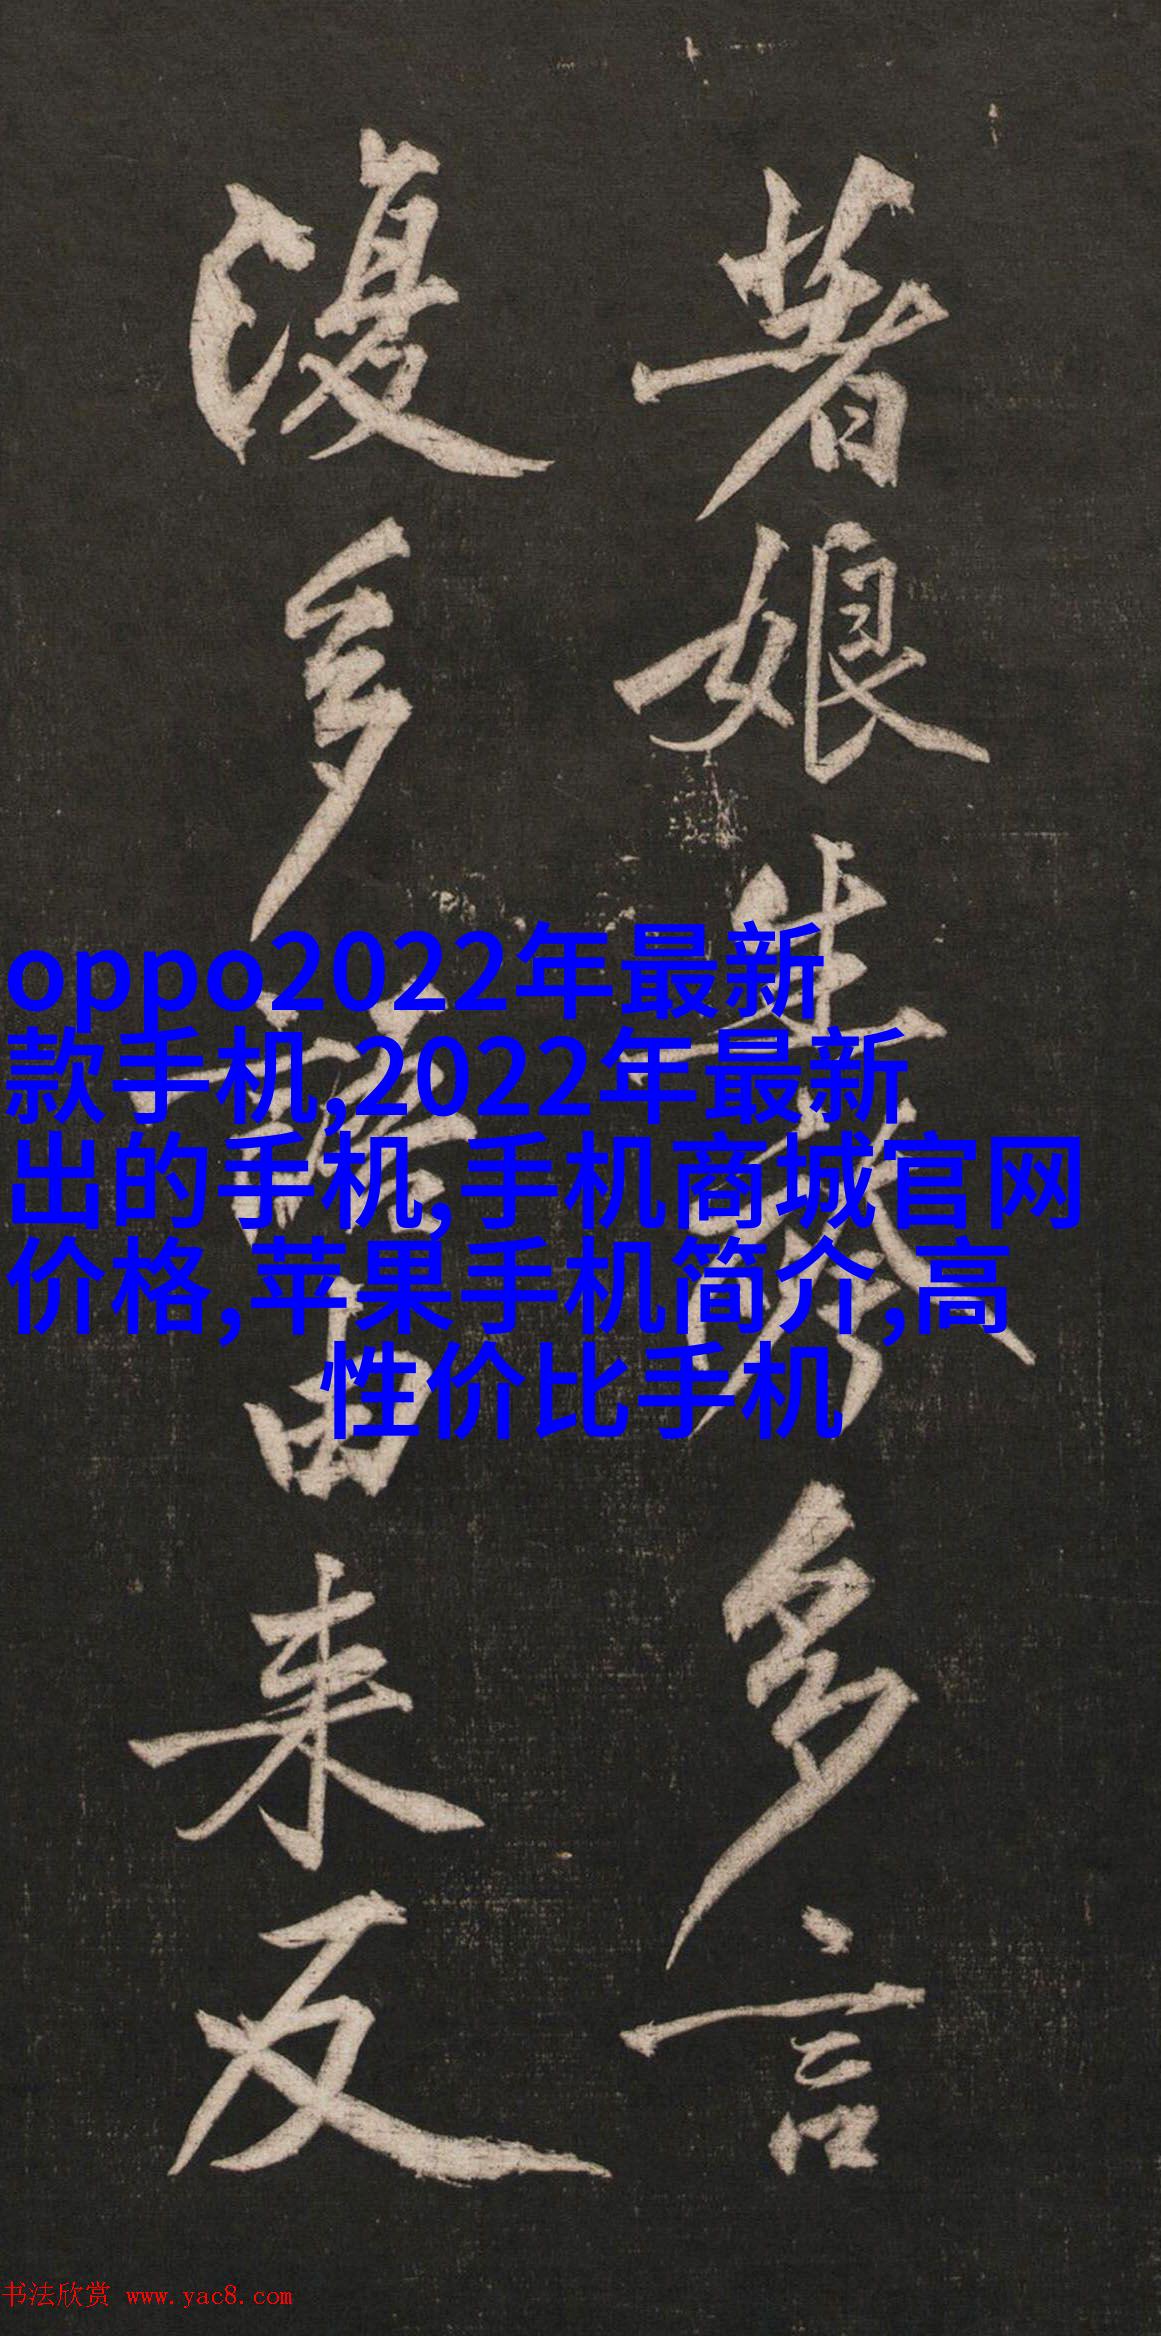 著娘生多言
復多語由来反
oppo2022年最新
款手机,2022年最新
出的手机,手机商城官网
价格,苹果手机简介,高
性价比手机
书法欣赏 www.yac8.com